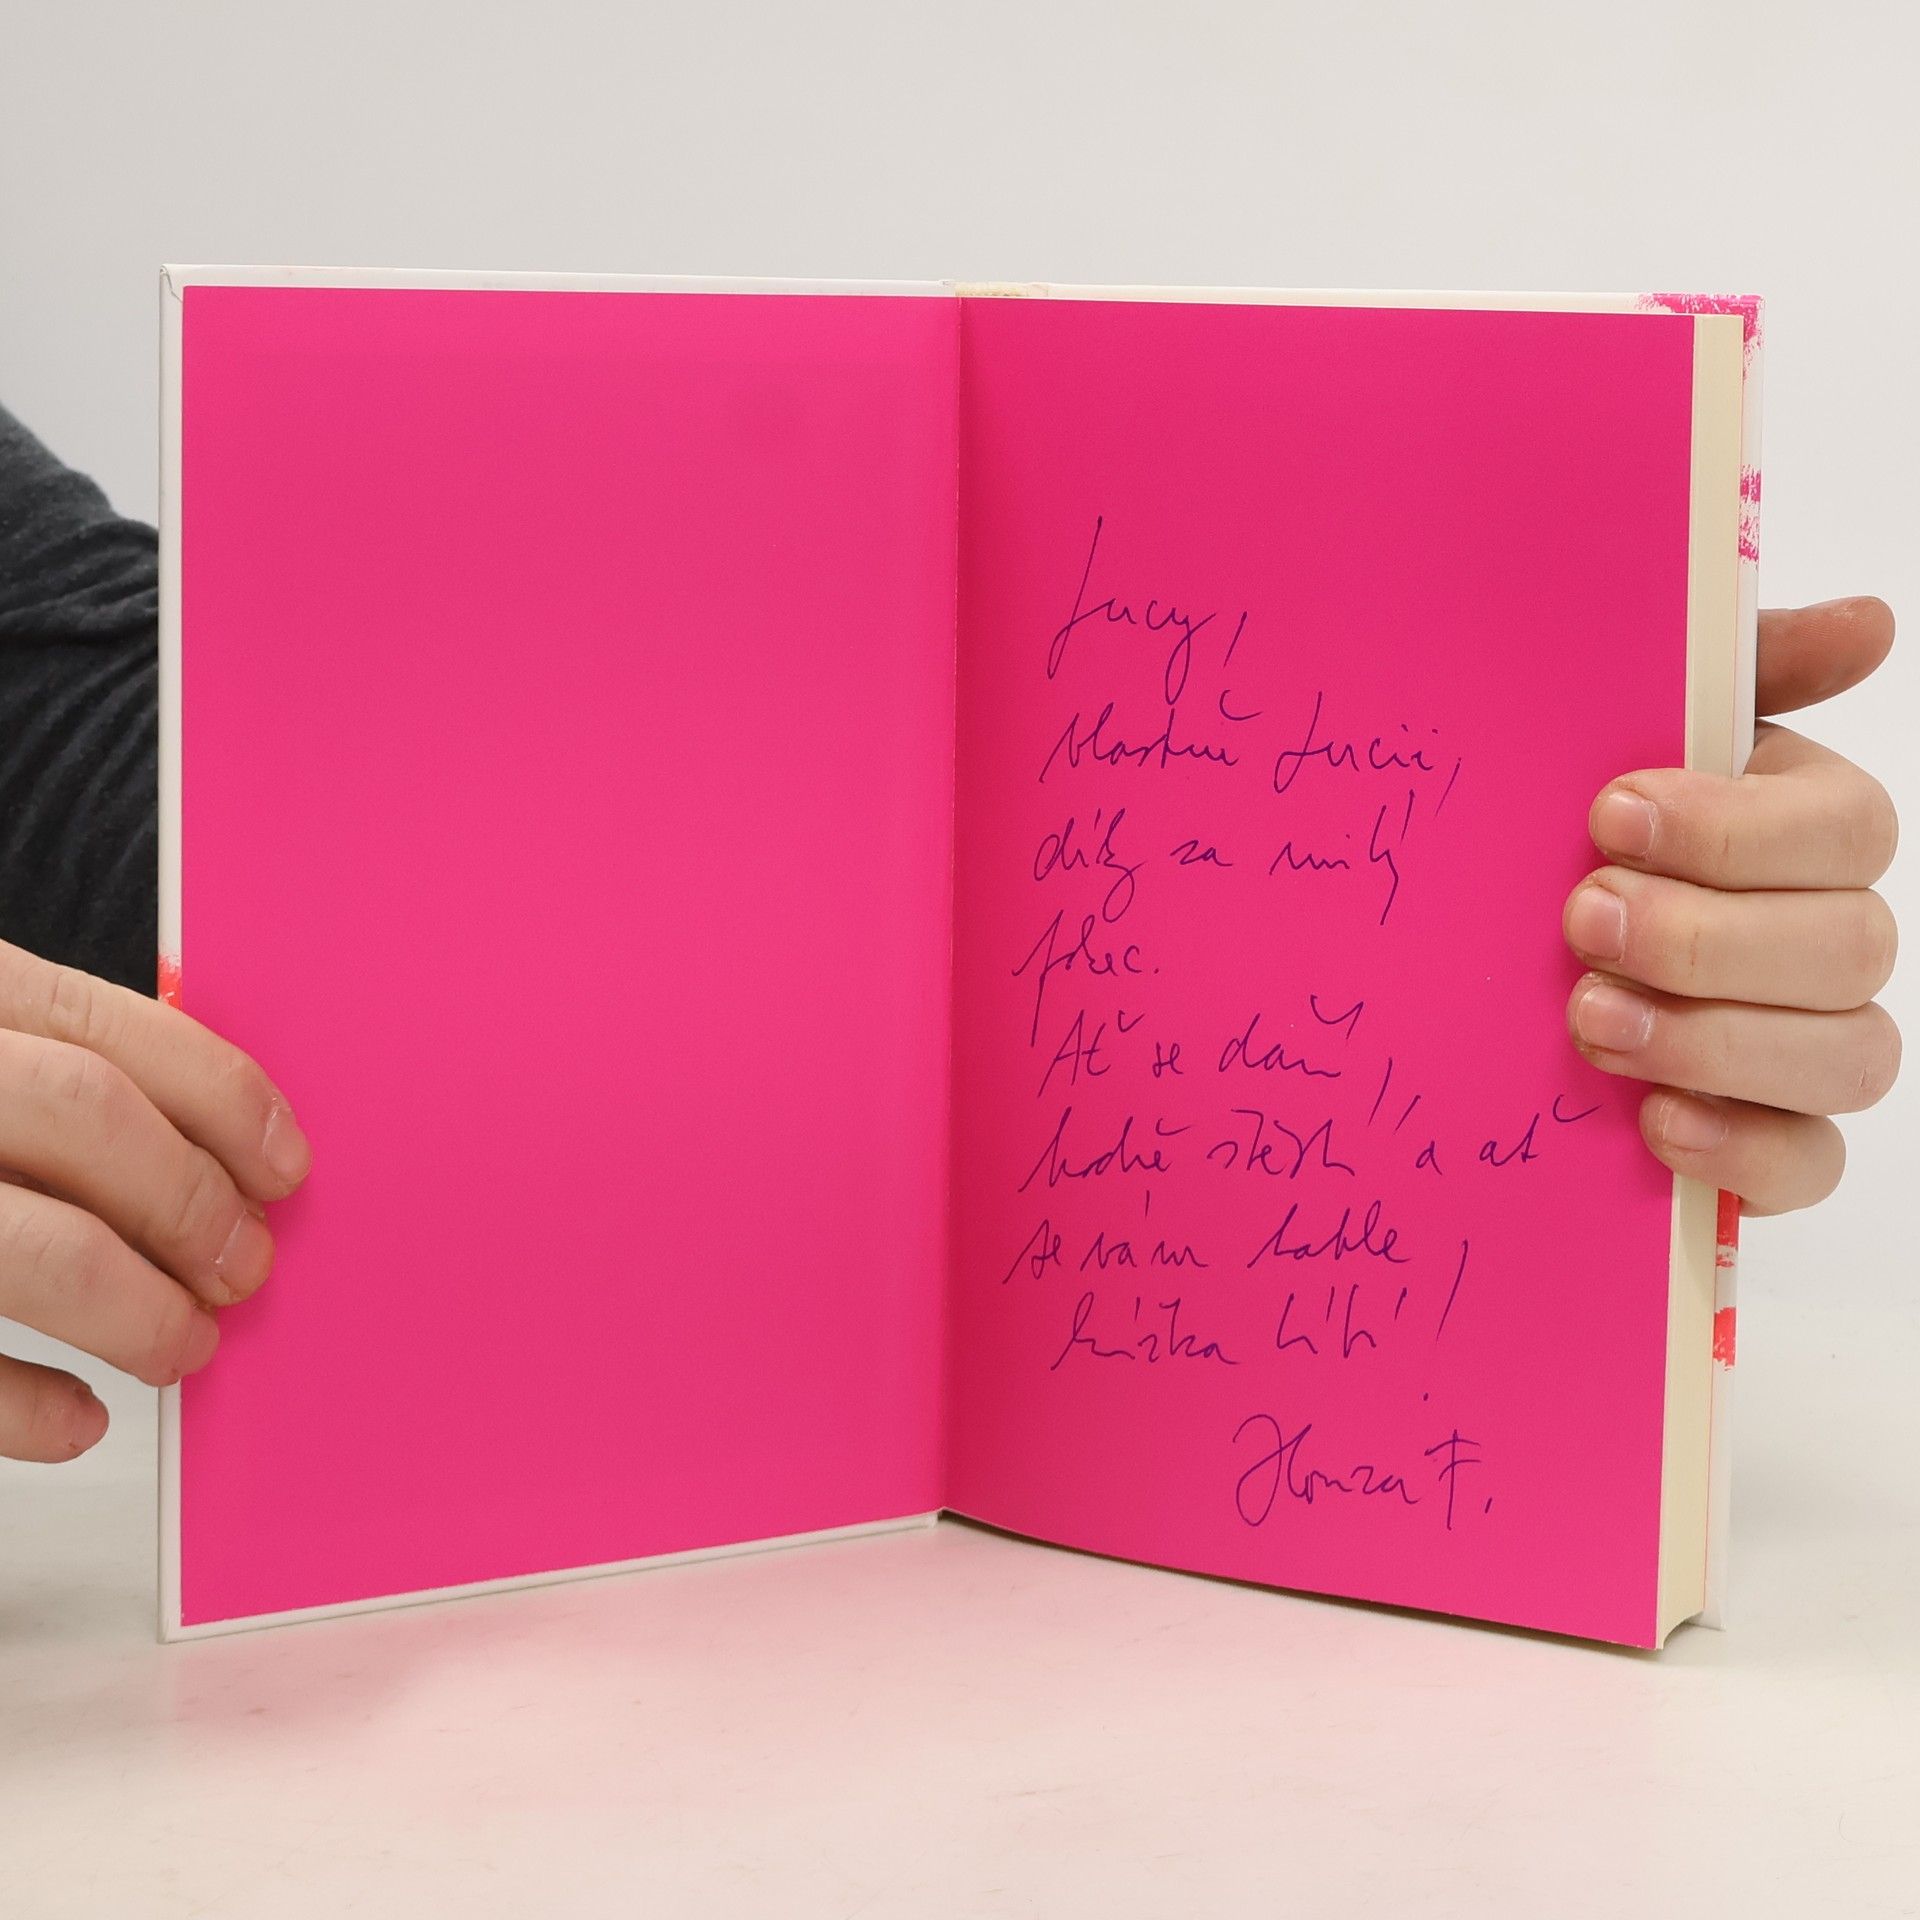 Lucy,
vlastně Lucii,
díky za milý
pokec.
Ať se daří,
hodně štěstí a ať
se vám tahle
knížka líbí!
Honza F.